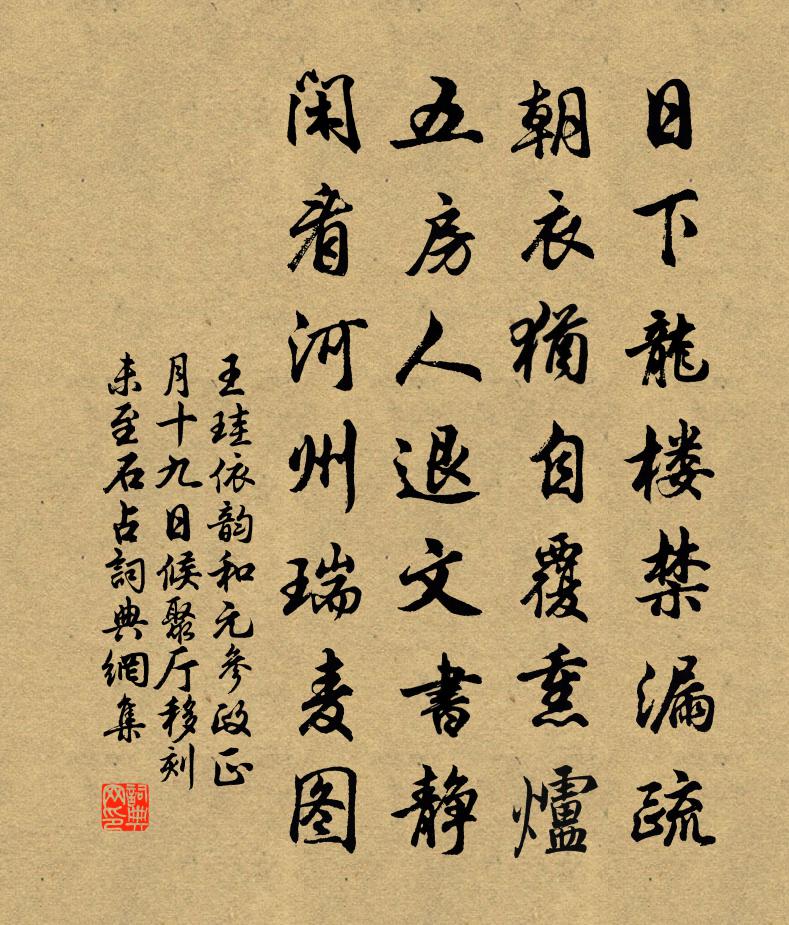 日下龍楼禁漏疏
朝衣猶自覆熏爐
五房人退文書静
闲看河州瑞麦图
王珪依韵和元參政正
月十九日候聚厅移刻
未至石占詞典網集
詞典
网印